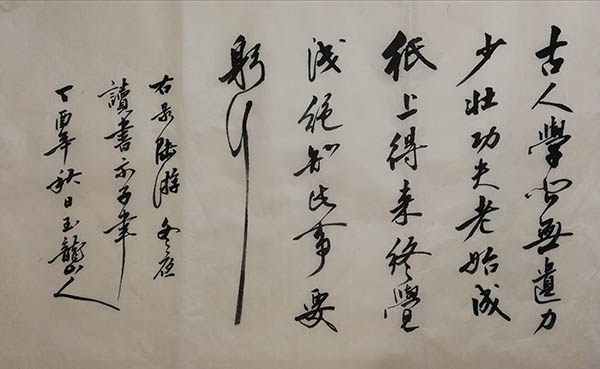 古人學問無遺力
少壯功夫老始成
紙上得來終覺
淺絕知此事要
躬行
右录陸游冬夜
讀書示子聿
丁酉年秋日玉龍山人